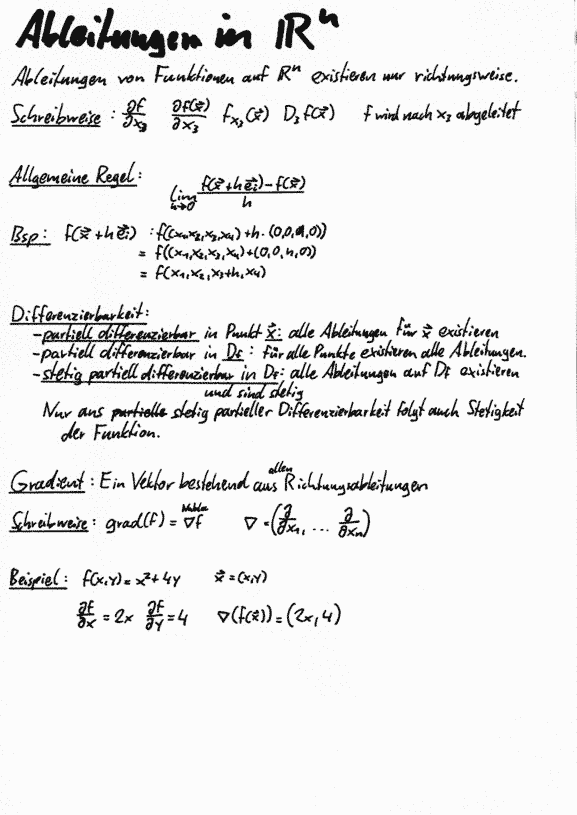 Ableitungen in ℝⁿ
Ableitungen von Funktionen auf ℝⁿ existieren nur richtungsweise.
Schreibweise : ∂f/∂x₃ ∂f(x⃗)/∂x₃ f_x₃(x⃗) D₃f(x⃗) f wird nach x₃ abgeleitet
Allgemeine Regel: lim h→0 (f(x⃗+he⃗ᵢ)-f(x⃗))/h
Bsp: f(x⃗+he⃗ᵢ) : f((x₁,x₂,x₃,x₄)+h·(0,0,1,0))
= f((x₁,x₂,x₃,x₄)+(0,0,h,0))
= f(x₁,x₂,x₃+h,x₄)
Differenzierbarkeit:
-partiell differenzierbar in Punkt x⃗: alle Ableitungen für x⃗ existieren
-partiell differenzierbar in Df : für alle Punkte existieren alle Ableitungen.
-stetig partiell differenzierbar in Df: alle Ableitungen auf Df existieren
und sind stetig
Nur aus partielle stetig partieller Differenzierbarkeit folgt auch Stetigkeit
der Funktion.
Gradient : Ein Vektor bestehend aus allen Richtungsableitungen
Schreibweise: grad(f) = Nabla ∇f ∇ = (∂/∂x₁, ... ∂/∂xₙ)
Beispiel: f(x,y) = x²+4y x⃗ = (x,y)
∂f/∂x = 2x ∂f/∂y = 4 ∇(f(x⃗)) = (2x,4)